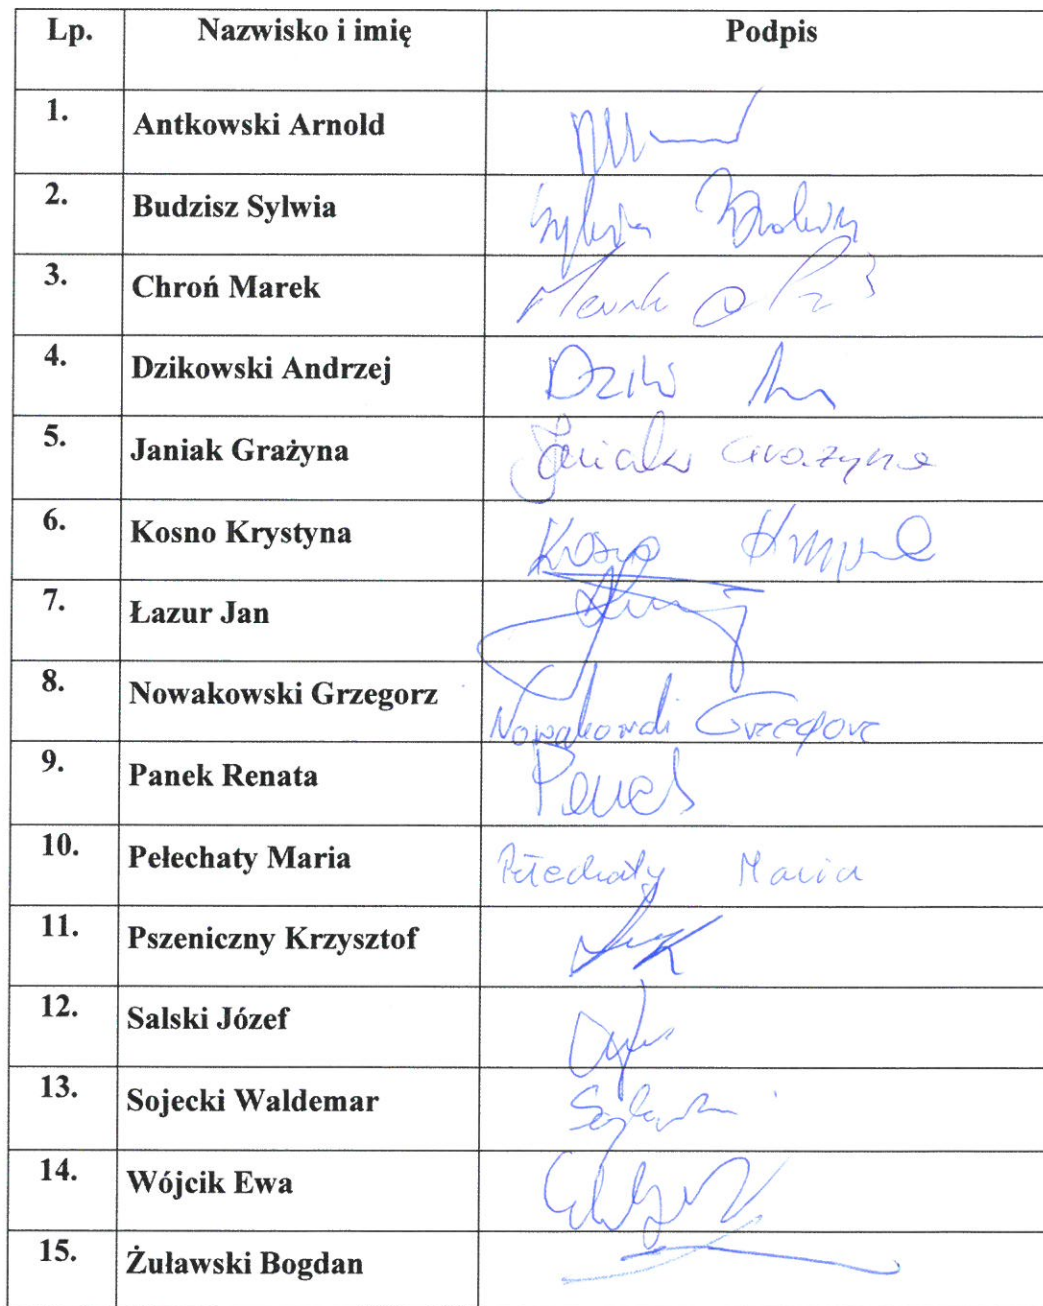 Lp. Nazwisko i imię Podpis
1. Antkowski Arnold
2. Budzisz Sylwia Sylwia
3. Chroń Marek Marek
4. Dzikowski Andrzej
5. Janiak Grażyna Janiak Grażyna
6. Kosno Krystyna Kosno
7. Łazur Jan
8. Nowakowski Grzegorz Nowakowski Grzegorz
9. Panek Renata Panek
10. Pełechaty Maria Pełechaty Maria
11. Pszeniczny Krzysztof
12. Salski Józef
13. Sojecki Waldemar
14. Wójcik Ewa
15. Żuławski Bogdan